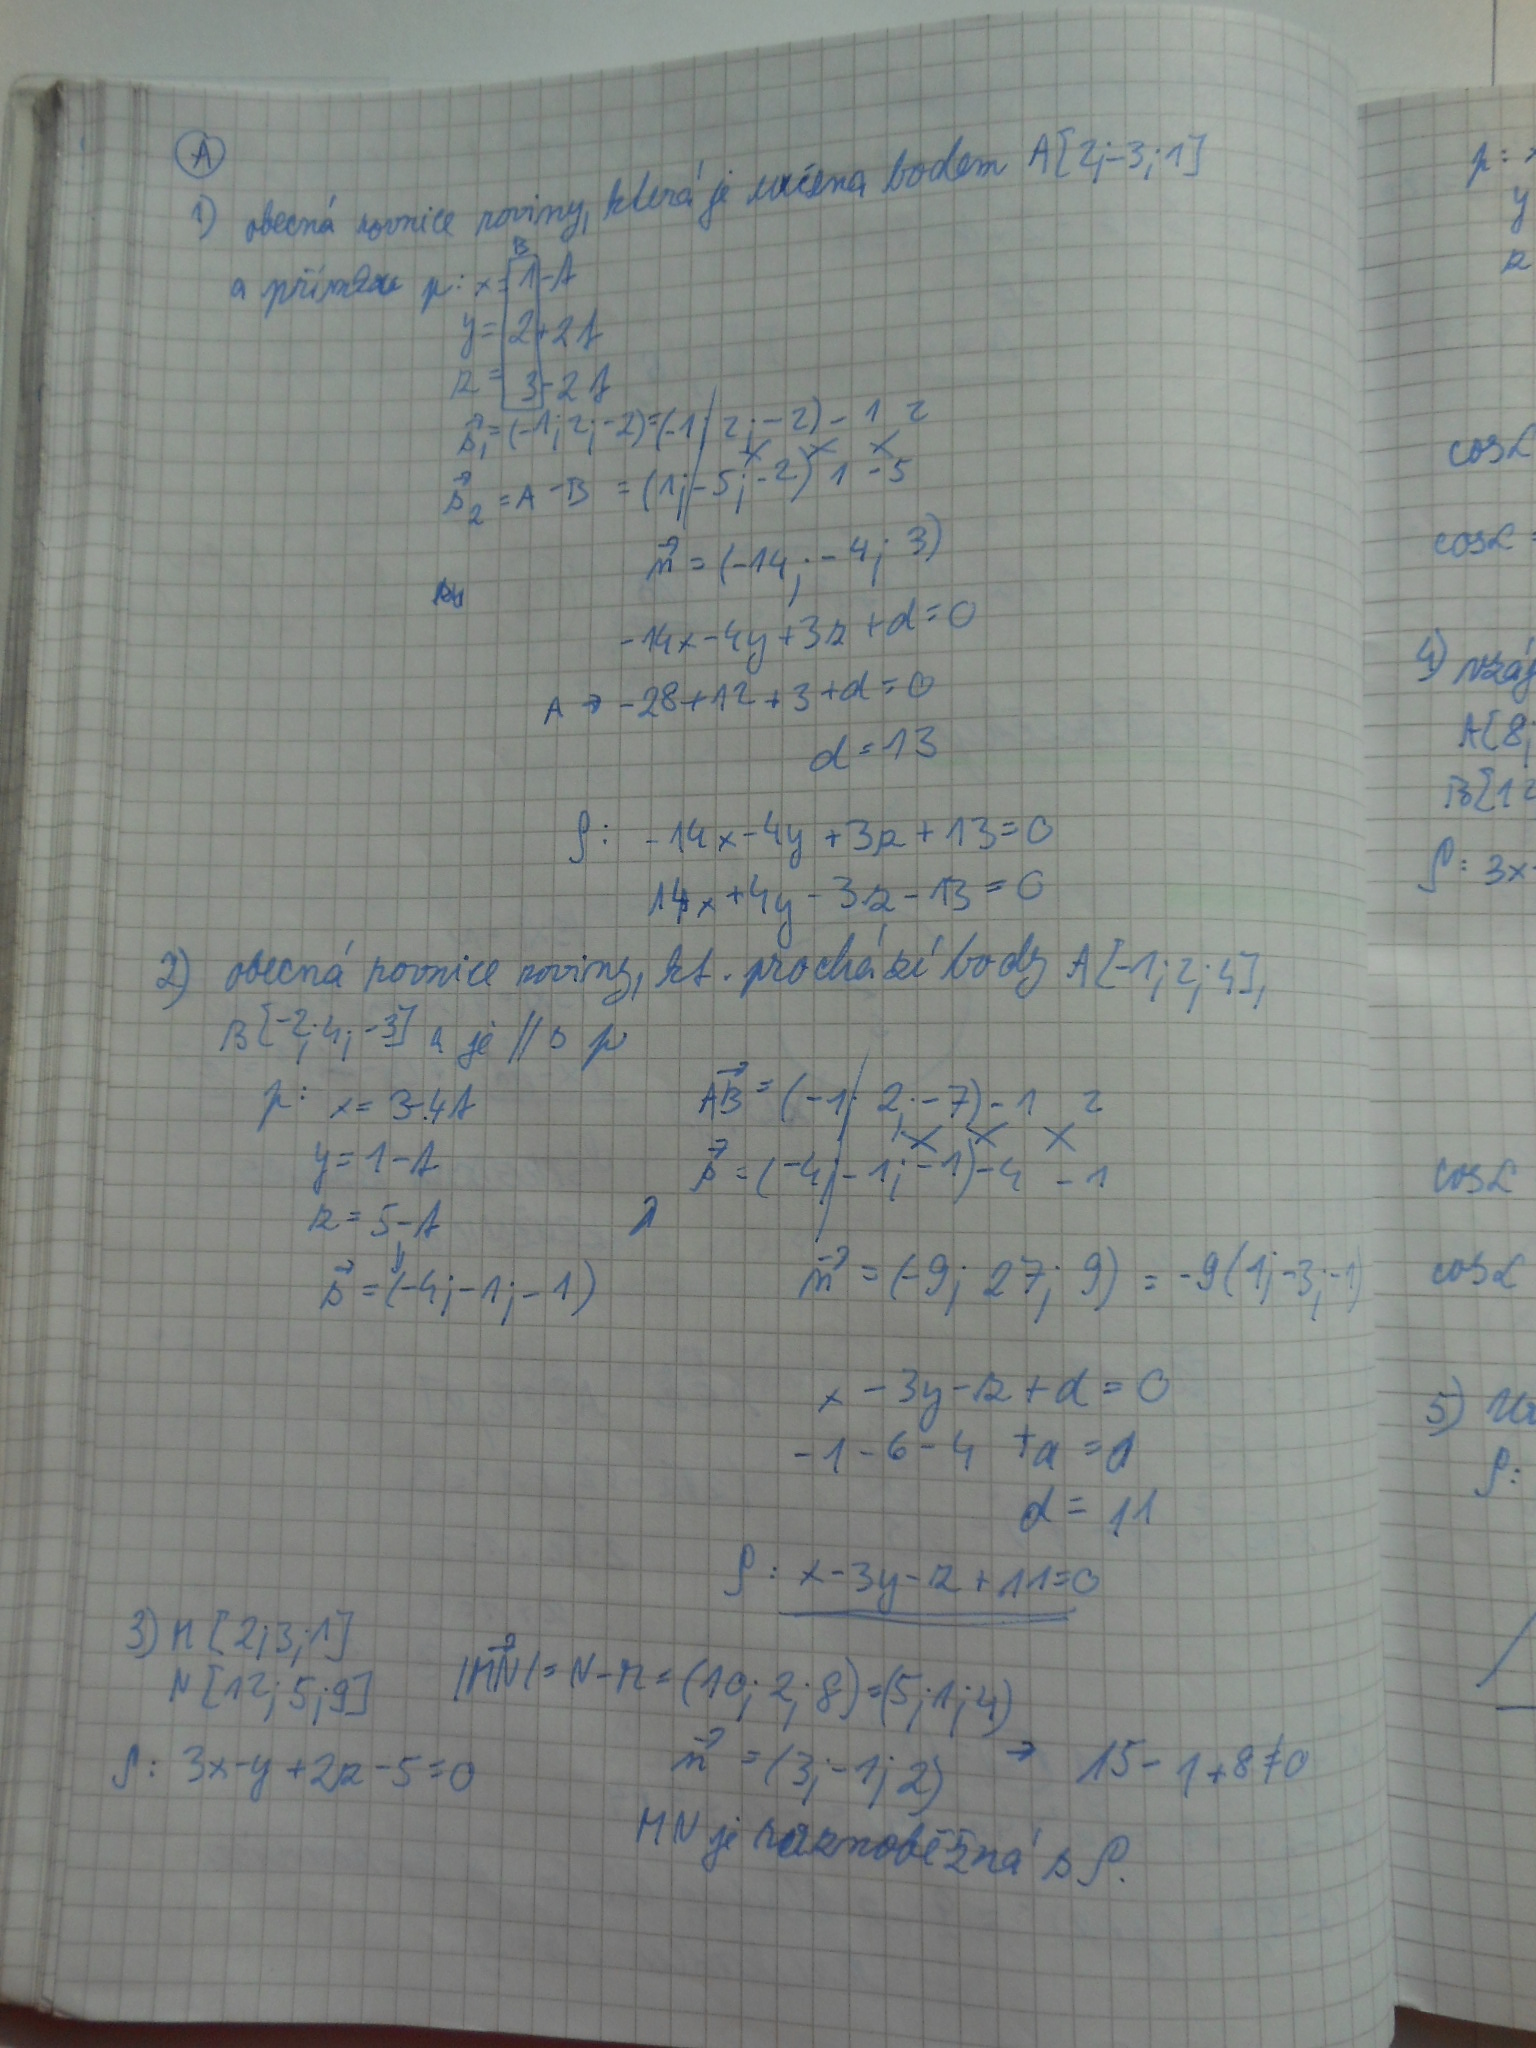 A
1) obecná rovnice roviny, která je určena bodem A[2;-3;1]
B
a přímkou p: x = 1-t
y = 2+2t
z = 3-2t
s⃗₁ = (-1; 2; -2) = (-1; 2; -2) -1 2
s⃗₂ = A-B = (1; -5; -2) 1 -5
n⃗ = (-14; -4; 3)
-14x-4y+3z+d=0
A → -28+12+3+d=0
d=13
ρ: -14x-4y+3z+13=0
14x+4y-3z-13=0
2) obecná rovnice roviny, kt. prochází body A[-1;2;4],
B[-2;4;-3] a je // s p
p: x = 3-4t
y = 1-t
z = 5-t
s⃗ = (-4;-1;-1)
AB⃗ = (-1; 2; -7) -1 2
s⃗ = (-4; -1; -1) -4 -1
n⃗ = (-9; 27; 9) = -9(1;-3;-1)
x-3y-z+d=0
-1-6-4 +d=0
d=11
ρ: x-3y-z+11=0
3) M[2;3;1]
N[12;5;9]
|MN⃗| = N-M = (10; 2; 8) = (5;1;4)
ρ: 3x-y+2z-5=0
n⃗ = (3;-1;2) → 15-1+8≠0
MN je různoběžná s ρ.
p:
y
z
cosα
cosα =
4)
A[8;
B[12
ρ: 3x-
cosα
cosα
5)
ρ: